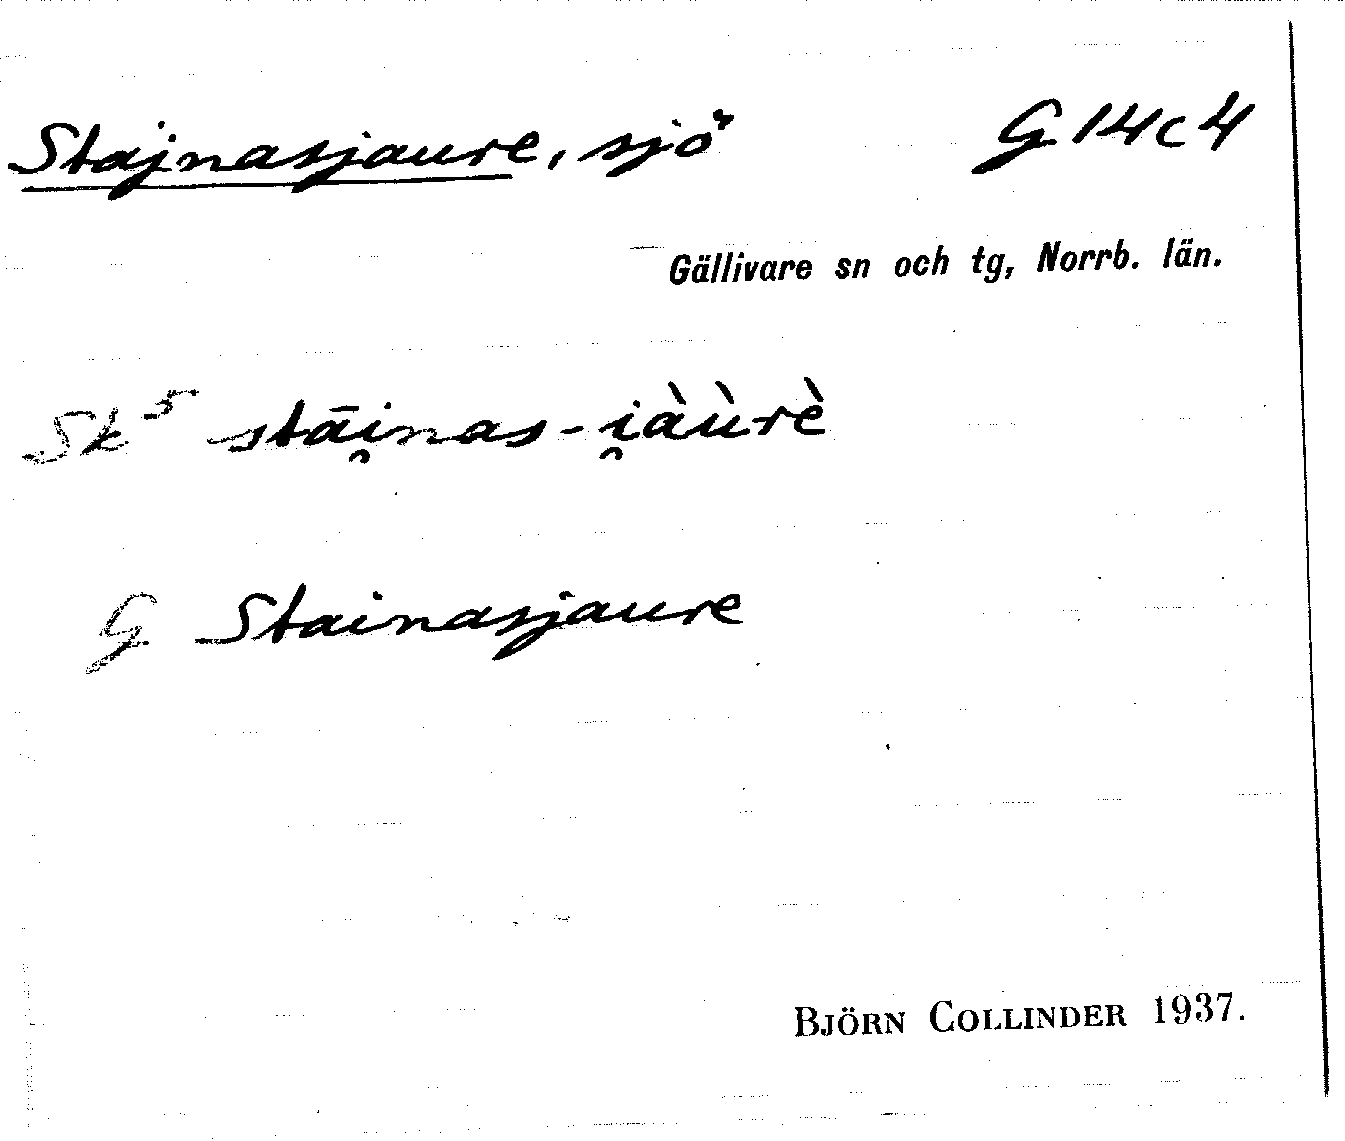 Stajnasjaure, sjö G 14 c 4
Gällivare sn och tg, Norrb. län.
Sk⁵ stāi̯nas-i̯àùrè
G Stainasjaure
BJÖRN COLLINDER 1937.